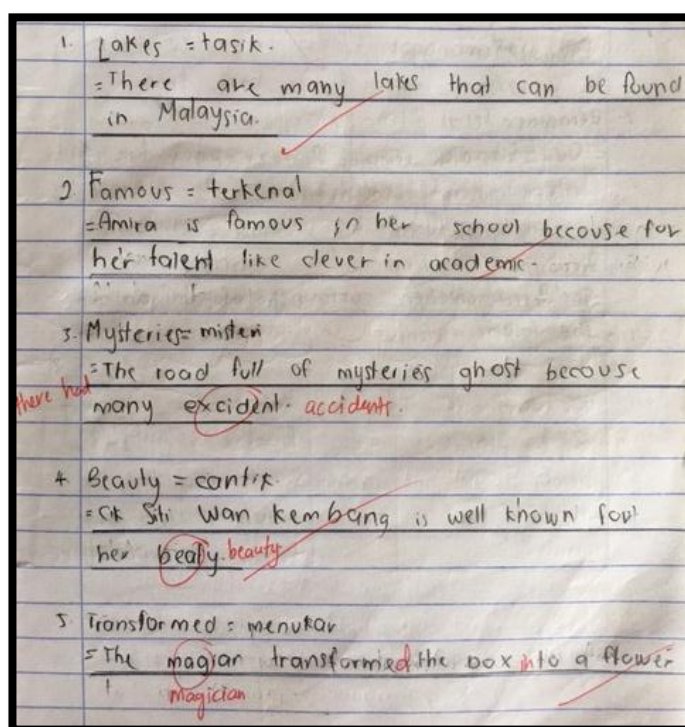 1. Lakes = tasik.
= There are many lakes that can be found
in Malaysia.
2 Famous = terkenal
= Amira is famous in her school becouse for
her talent like clever in academic.
3. Mysteries = misteri
= The road full of mysteries ghost becouse
there had many excident. accidents.
4 Beauty = cantik.
= Cik Siti Wan Kembang is well known for
her bealy. beauty
5. Transformed = menukar
= The magian transformed the box into a flower
magician